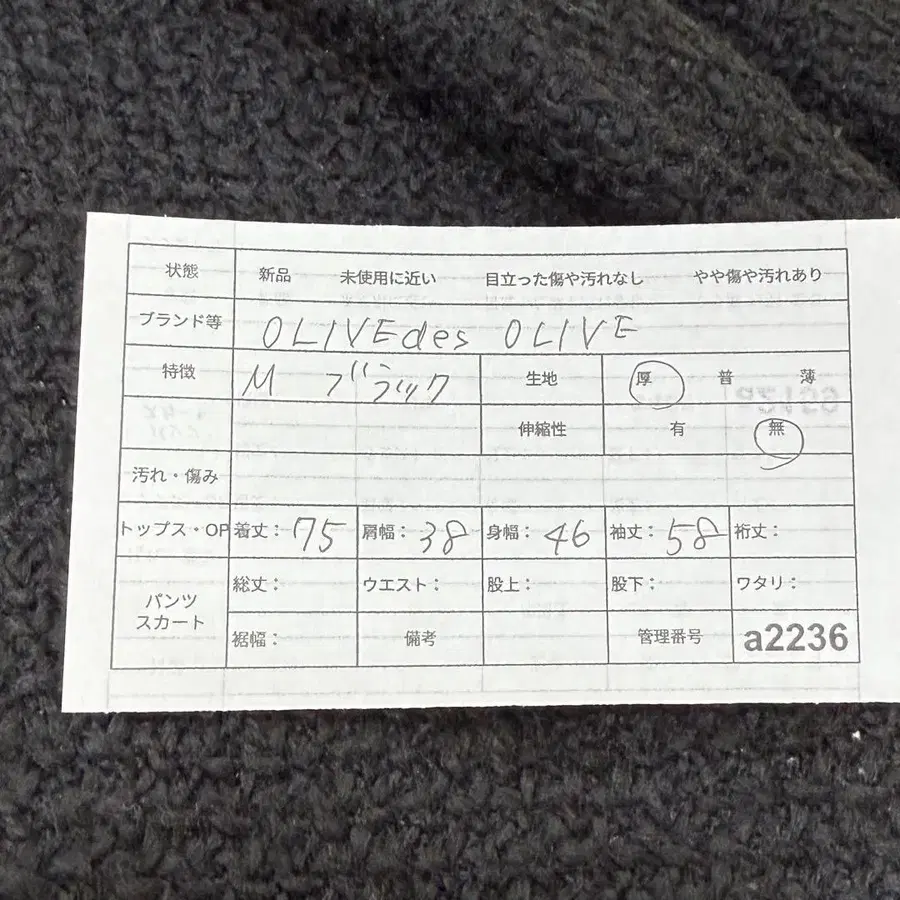 状態 新品 未使用に近い 目立った傷や汚れなし やや傷や汚れあり
ブランド等 OLIVEdes OLIVE
特徴 M ブラック 生地 厚 普 薄
伸縮性 有 無
汚れ・傷み
トップス・OP 着丈: 75 肩幅: 38 身幅: 46 袖丈: 58 裄丈:
パンツ
スカート
総丈: ウエスト: 股上: 股下: ワタリ:
裾幅: 備考 管理番号 a2236